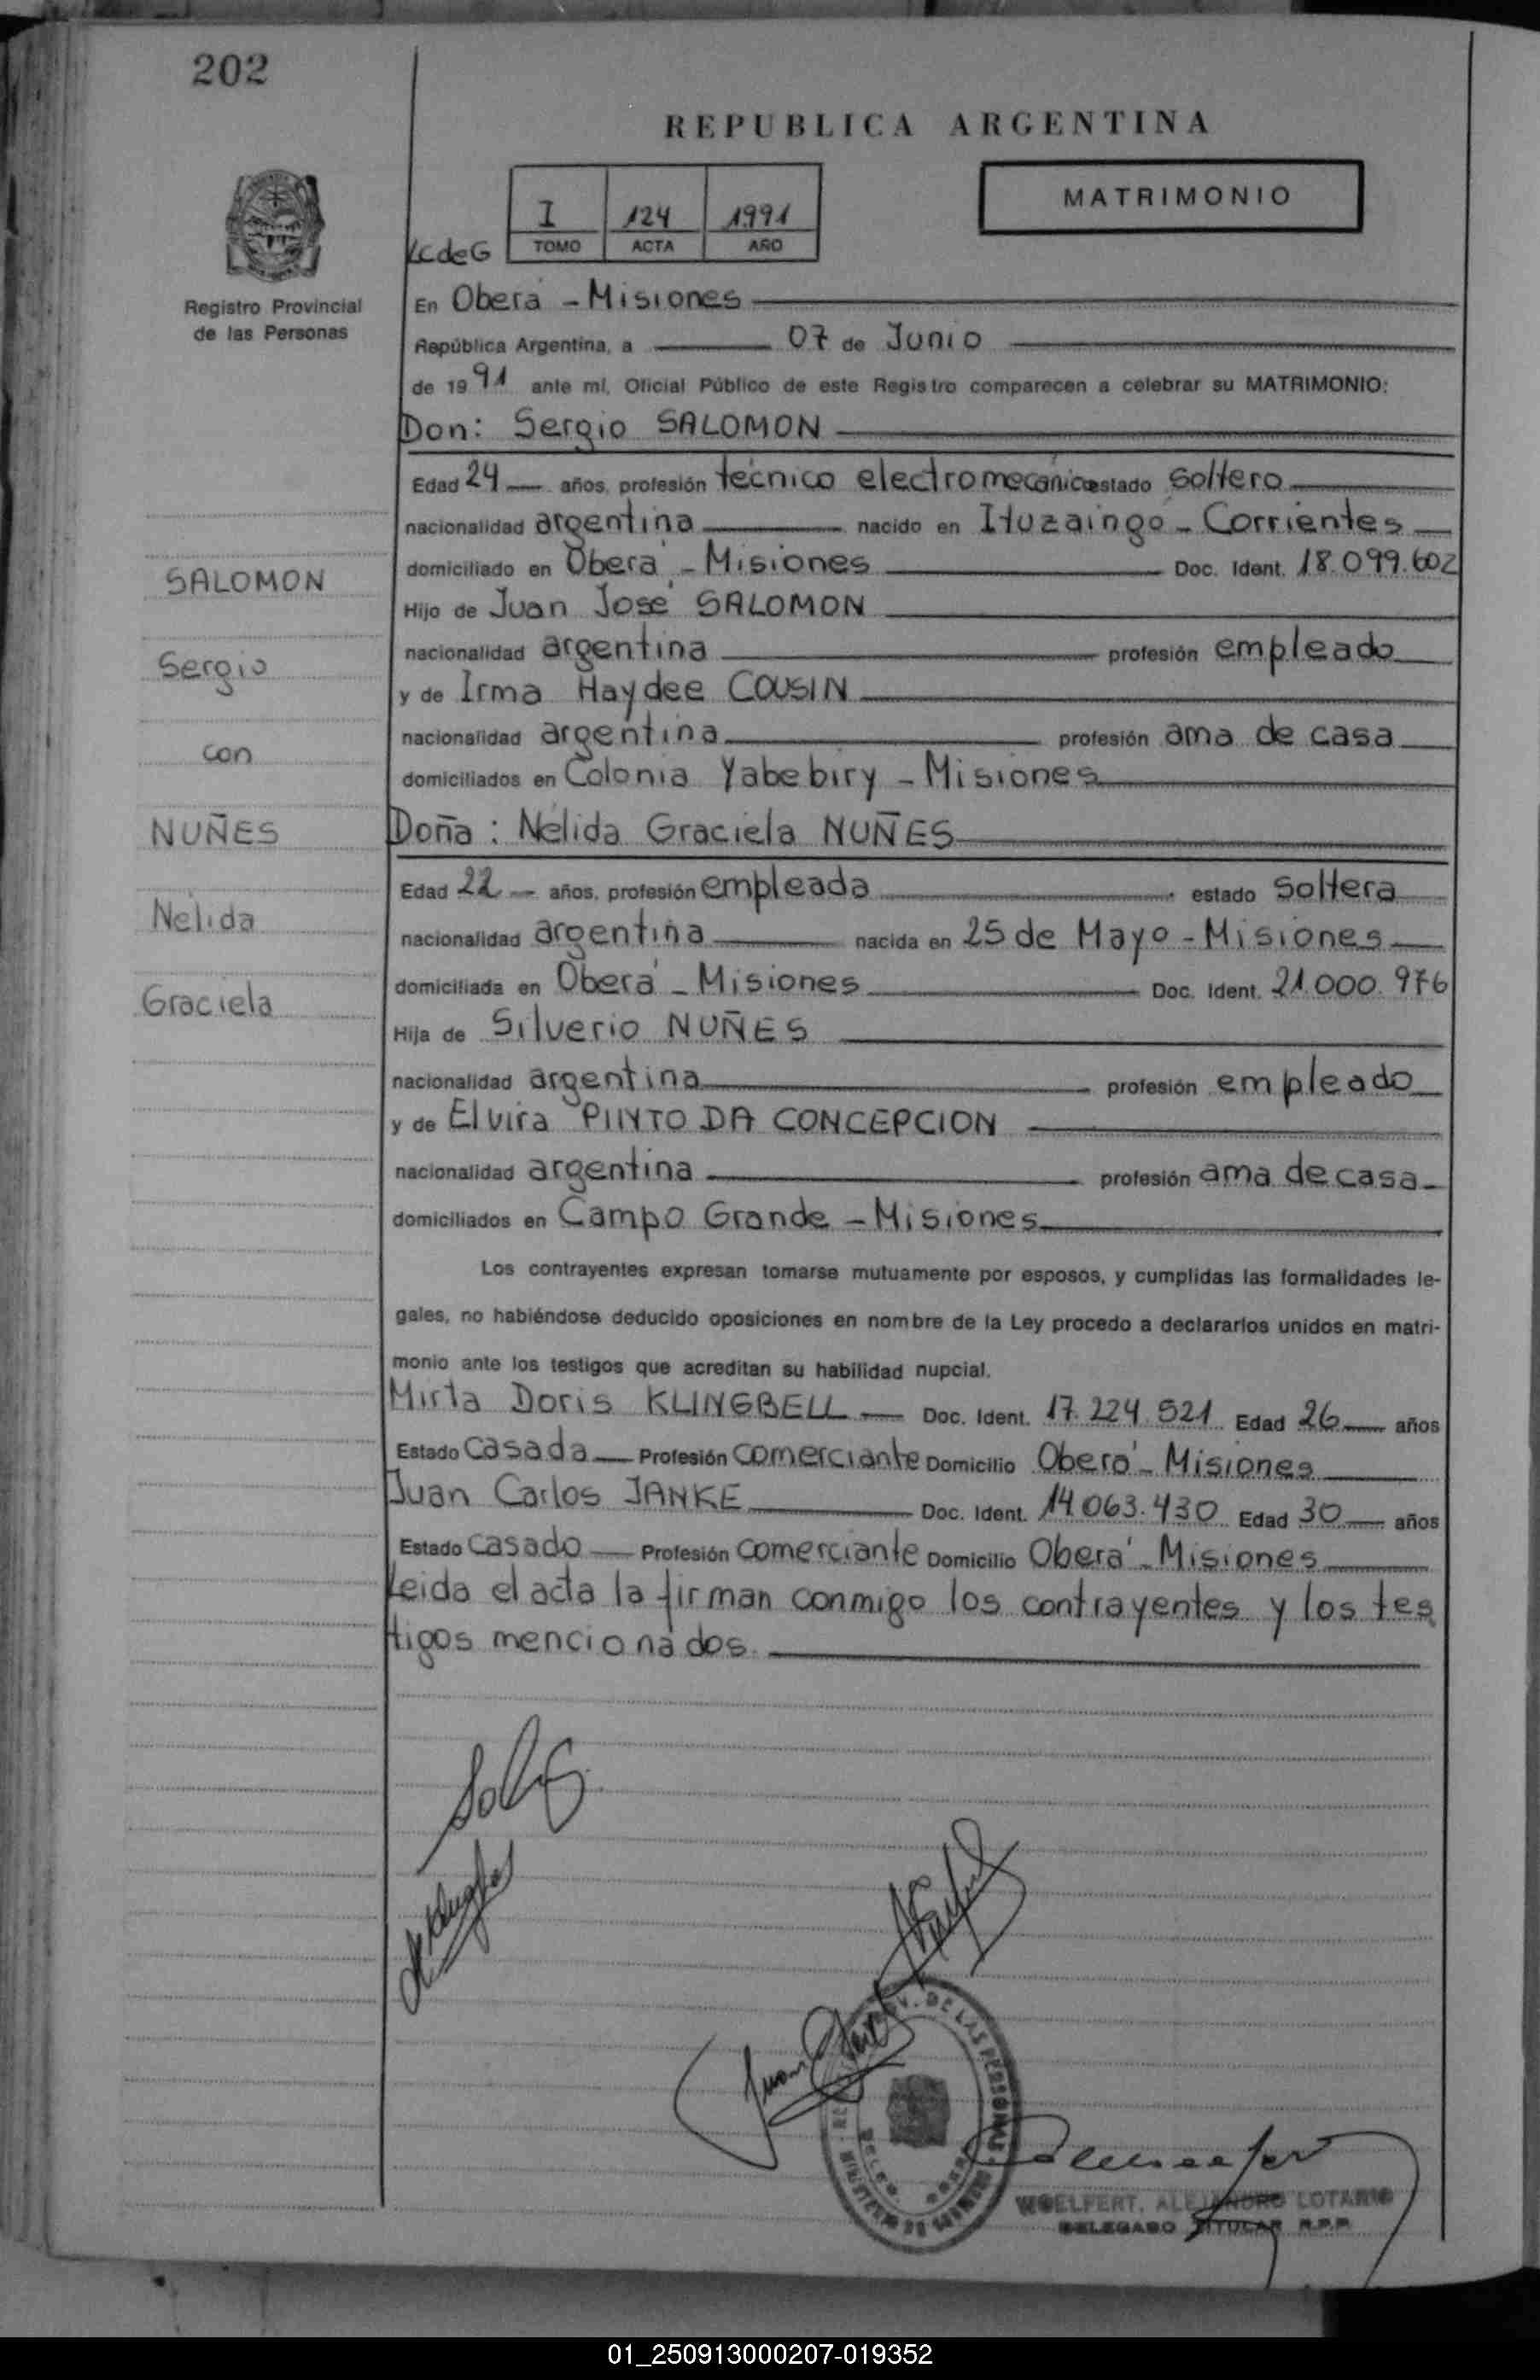 202
REPUBLICA ARGENTINA
MATRIMONIO
I 124 1991
TOMO ACTA AÑO
LCdeG
Registro Provincial
de las Personas
En Oberá - Misiones
República Argentina, a 07 de Junio
de 1991 ante mí, Oficial Público de este Registro comparecen a celebrar su MATRIMONIO:
Don: Sergio SALOMON
Edad 24 años, profesión técnico electromecánico estado soltero
nacionalidad argentina nacido en Ituzaingó - Corrientes
domiciliado en Oberá - Misiones Doc. Ident. 18.099.602
Hijo de Juan José SALOMON
nacionalidad argentina profesión empleado
y de Irma Haydee COUSIN
nacionalidad argentina profesión ama de casa
domiciliados en Colonia Yabebiry - Misiones
Doña: Nélida Graciela NUÑES
Edad 22 años, profesión empleada estado soltera
nacionalidad argentina nacida en 25 de Mayo - Misiones
domiciliada en Oberá - Misiones Doc. Ident. 21.000.976
Hija de Silverio NUÑES
nacionalidad argentina profesión empleado
y de Elvira PINTO DA CONCEPCION
nacionalidad argentina profesión ama de casa
domiciliados en Campo Grande - Misiones
Los contrayentes expresan tomarse mutuamente por esposos, y cumplidas las formalidades le-
gales, no habiéndose deducido oposiciones en nombre de la Ley procedo a declararlos unidos en matri-
monio ante los testigos que acreditan su habilidad nupcial.
Mirta Doris KLINGBELL Doc. Ident. 17.224.521 Edad 26 años
Estado Casada Profesión comerciante Domicilio Oberá - Misiones
Juan Carlos JANKE Doc. Ident. 14.063.430 Edad 30 años
Estado casado Profesión comerciante Domicilio Oberá - Misiones
Leida el acta la firman conmigo los contrayentes y los tes
tigos mencionados.
SALOMON
Sergio
con
NUÑES
Nélida
Graciela
WOELFERT, ALEJANDRO LOTARIO
DELEGADO TITULAR R.P.P.
01_250913000207-019352